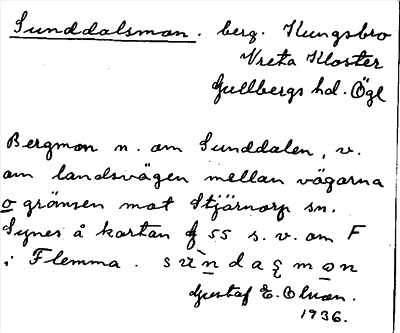 Sunddalsmon. berg. Kungsbro
Vreta Kloster
Gullbergs hd. Ögl
Bergmon n. om Sunddalen, v.
om landsvägen mellan vägarna
o gränsen mot Stjärnorp sn.
Synes å kartan f 55 s. v. om F
i Flemma. sundagmon
Gustaf E. Olson.
1936.